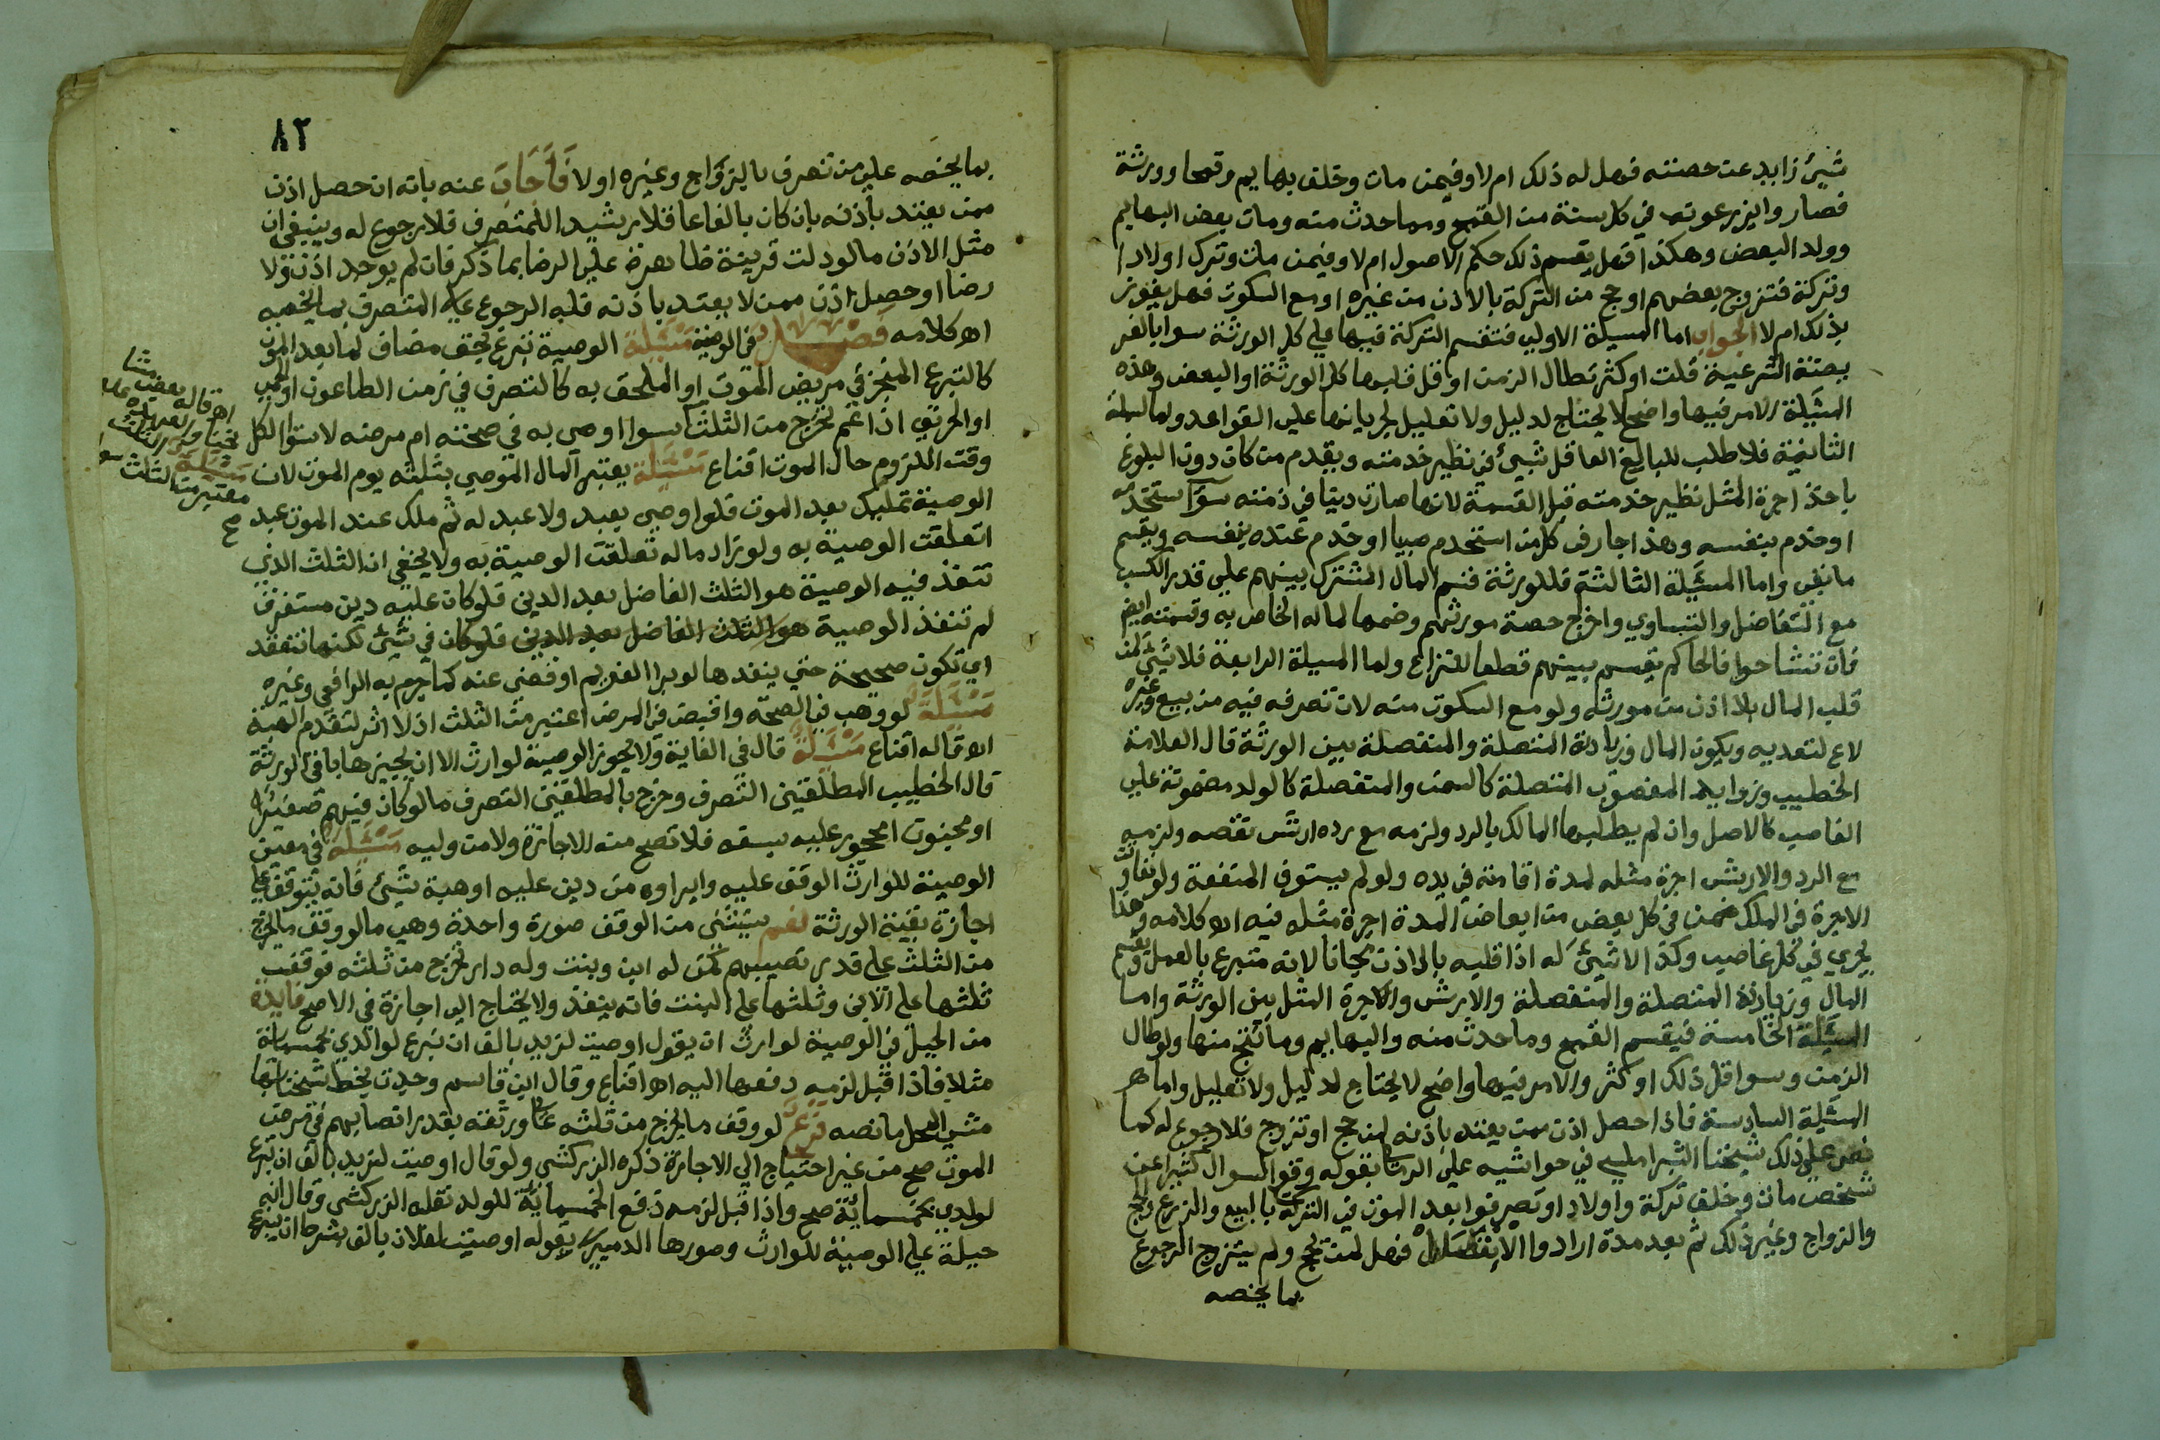 شيئ زايد عن حصته فهل له ذلك ام لا وفيمن مات وخلف بهايم وقمحا وورثة
فصاروا يزرعونه في كل سنة من القمح ومما حدث منه ومات بعض البهايم
وولد البعض وهكذا فهل يقسم ذلك حكم الاصول ام لا وفيمن مات وترك اولادا
وتركة فتزوج بعضهم او حج من التركة بالاذن من غيره او مع السكوت فهل يفوز
بذلك ام لا الجواب اما المسيلة الاولي فتقسم التركة فيها علي كل الورثة سوا بالفر
يضة الشرعية قلت او كثر تطال الزمن او قل قلبها كل الورثة او البعض وهذه
المسيلة الامر فيها واضح لا يحتاج لدليل ولا تعليل لجريانها علي القواعد واما المسيلة
الثانية فلا طلب للبالغ العاقل شيئ في نظير خدمته ويقدم من كان دون البلوغ
باخذ اجرة المثل نظير خدمته قبل القسمة لانها صارت دينا في ذمته سوا استخدمه
او خدم بنفسه وهذا جار في كل من استخدم صبيا او خدم عنده بنفسه ويقسم
ما بقي واما المسيلة الثالثة فللورثة قسم المال المشترك بينهم علي قدر الكسب
مع التفاضل والتساوي واخرج حصة مورثهم وضمها لماله الخاص به وقسمته ايضا
فان تشاحوا فالحاكم يقسم بينهم قطعا للنزاع واما المسيلة الرابعة فلا شيئ لمن
قلب المال بلا اذن من مورثه ولو مع السكوت منه لان تصرفه فيه من بيع وغيره
لاغ لتعديه ويكون المال وزيادته المتصلة والمنفصلة بين الورثة قال العلامة
الخطيب وزوايد المغصوب المتصلة كالسمن والمنفصلة كالولد مضمونة علي
الغاصب كالاصل وان لم يطلبها المالك بالرد ولزمه مع رده ارش نقصه ولزمه
مع الرد والارش اجرة مثله لمدة اقامته في يده ولو لم يستوف المنفعة ولو تفاوت
الاجرة في الملك ضمن في كل بعض من ابعاض المدة اجرة مثله فيه اه كلامه وهذا
يجري في كل غاصب وكذا لا شيئ له اذا قلبه بالاذن مجانا لانه متبرع بالعمل ويقسم
المال وزيادته المتصلة والمنفصلة والارش والاجرة المثل بين الورثة واما
المسيلة الخامسة فيقسم القمح وما حدث منه والبهايم وما نتج منها ولو طال
الزمن وسوا قل ذلك او كثر والامر فيها واضح لا يحتاج لدليل ولا تعليل واما
المسيلة السادسة فاذا حصل اذن ممن يعتد باذنه لمن حج او تزوج فلا رجوع له كما
نص علي ذلك شيخنا الشبراملسي في حواشيه علي الرملي بقوله وقع السوال كثيرا عن
شخص مات وخلف تركة واولاد او تصرفوا بعد الموت في التركة بالبيع والزرع والحج
والزواج وغير ذلك ثم بعد مدة ارادوا الانفصال فهل لمن لم يحج ولم يتزوج الرجوع
بما يخصه
٨٢
بما يخصه علي من تصرف بالزواج وغيره اولا فاجاب عنه بانه ان حصل اذن
ممن يعتد باذنه بان كان بالغا عاقلا رشيدا للمتصرف فلا رجوع له وينبغي ان
مثل الاذن ما لو دلت قرينة ظاهرة علي الرضا بما ذكر فان لم يوجد اذن ولا
رضا او حصل اذن ممن لا يعتد باذنه فله الرجوع علي المتصرف بما يخصه
اه كلامه فصل في الوصية مسئلة الوصية تبرع بحق مضاف لما بعد الموت
كالتبرع المنجز في مريض الموت او الملحق به كالتصرف في زمن الطاعون او الحمي
او الحرق اذا عم تخرج من الثلث سوا اوصي به في صحته ام مرضه لاستوا الكل
وقت اللزوم حال الموت اقناع مسئلة يعتبر المال الموصي بثلثه يوم الموت لان
الوصية تمليك بعد الموت فلو اوصي بعبد ولا عبد له ثم ملك عند الموت عبد
اتعلقت الوصية به ولو زاد ماله تعلقت الوصية به ولا يخفي ان الثلث الذي
تنفذ فيه الوصية هو الثلث الفاضل بعد الدين فلو كان عليه دين مستغرق
لم تنفذ الوصية هو الثلث الفاضل بعد الدين فلو كان في شيئ لكنها تنعقد
اي تكون صحيحة حتي ينفذها لو ابرا الغريم او قضي عنه كما جزم به الرافعي وغيره
مسئلة لو وهب في الصحة واقبض في المرض اعتبر من الثلث اذ لا اثر لتقدم الهبة
اه قاله اقناع مسئلة قال في الغاية ولا يجوز الوصية لوارث الا ان يجيزها باقي الورثة
قال الخطيب المطلقين التصرف وخرج بالمطلقين التصرف ما لو كان فيهم صغيرا
او مجنون امحجور عليه بسفه فلا تصح منه الاجازة ولا من وليه مسئلة في معني
الوصية للوارث الوقف عليه وابراوه من دين عليه او هبة شيئ فانه يتوقف علي
اجازة بقية الورثة نعم يستثني من الوقف صورة واحدة وهي ما لو وقف ما يخرج
من الثلث علي قدر نصيبهم كمن له ابن وبنت وله دار تخرج من ثلثه فوقف
ثلثيها علي الابن وثلثها علي البنت فانه ينفذ ولا يحتاج الي اجازة في الاصح فايدة
من الحيل في الوصية لوارث ان يقول اوصيت لزيد بالف ان تبرع لولدي بخمسماية
مثلا فاذا قبل لزمه دفعها اليه اه اقناع وقال ابن قاسم وجدت بخط شيخنا بها
مش المحل ما نصه فرع لو وقف ما يخرج من ثلثه علي ورثته بقدر انصبايهم في مرض
الموت صح من غير احتياج الي الاجازة ذكره الزركشي ولو قال اوصيت لزيد بالف ان تبرع
لولدي بخمسماية صح واذا قبل لزمه دفع الخمسماية للولد نقله الزركشي وقال انه
حيلة علي الوصية للوارث وصورها الدميري بقوله اوصيت لفلان بالف بشرط ان يتبرع
اه قاله بعض
مسئلة
معتبر من الثلث
صح